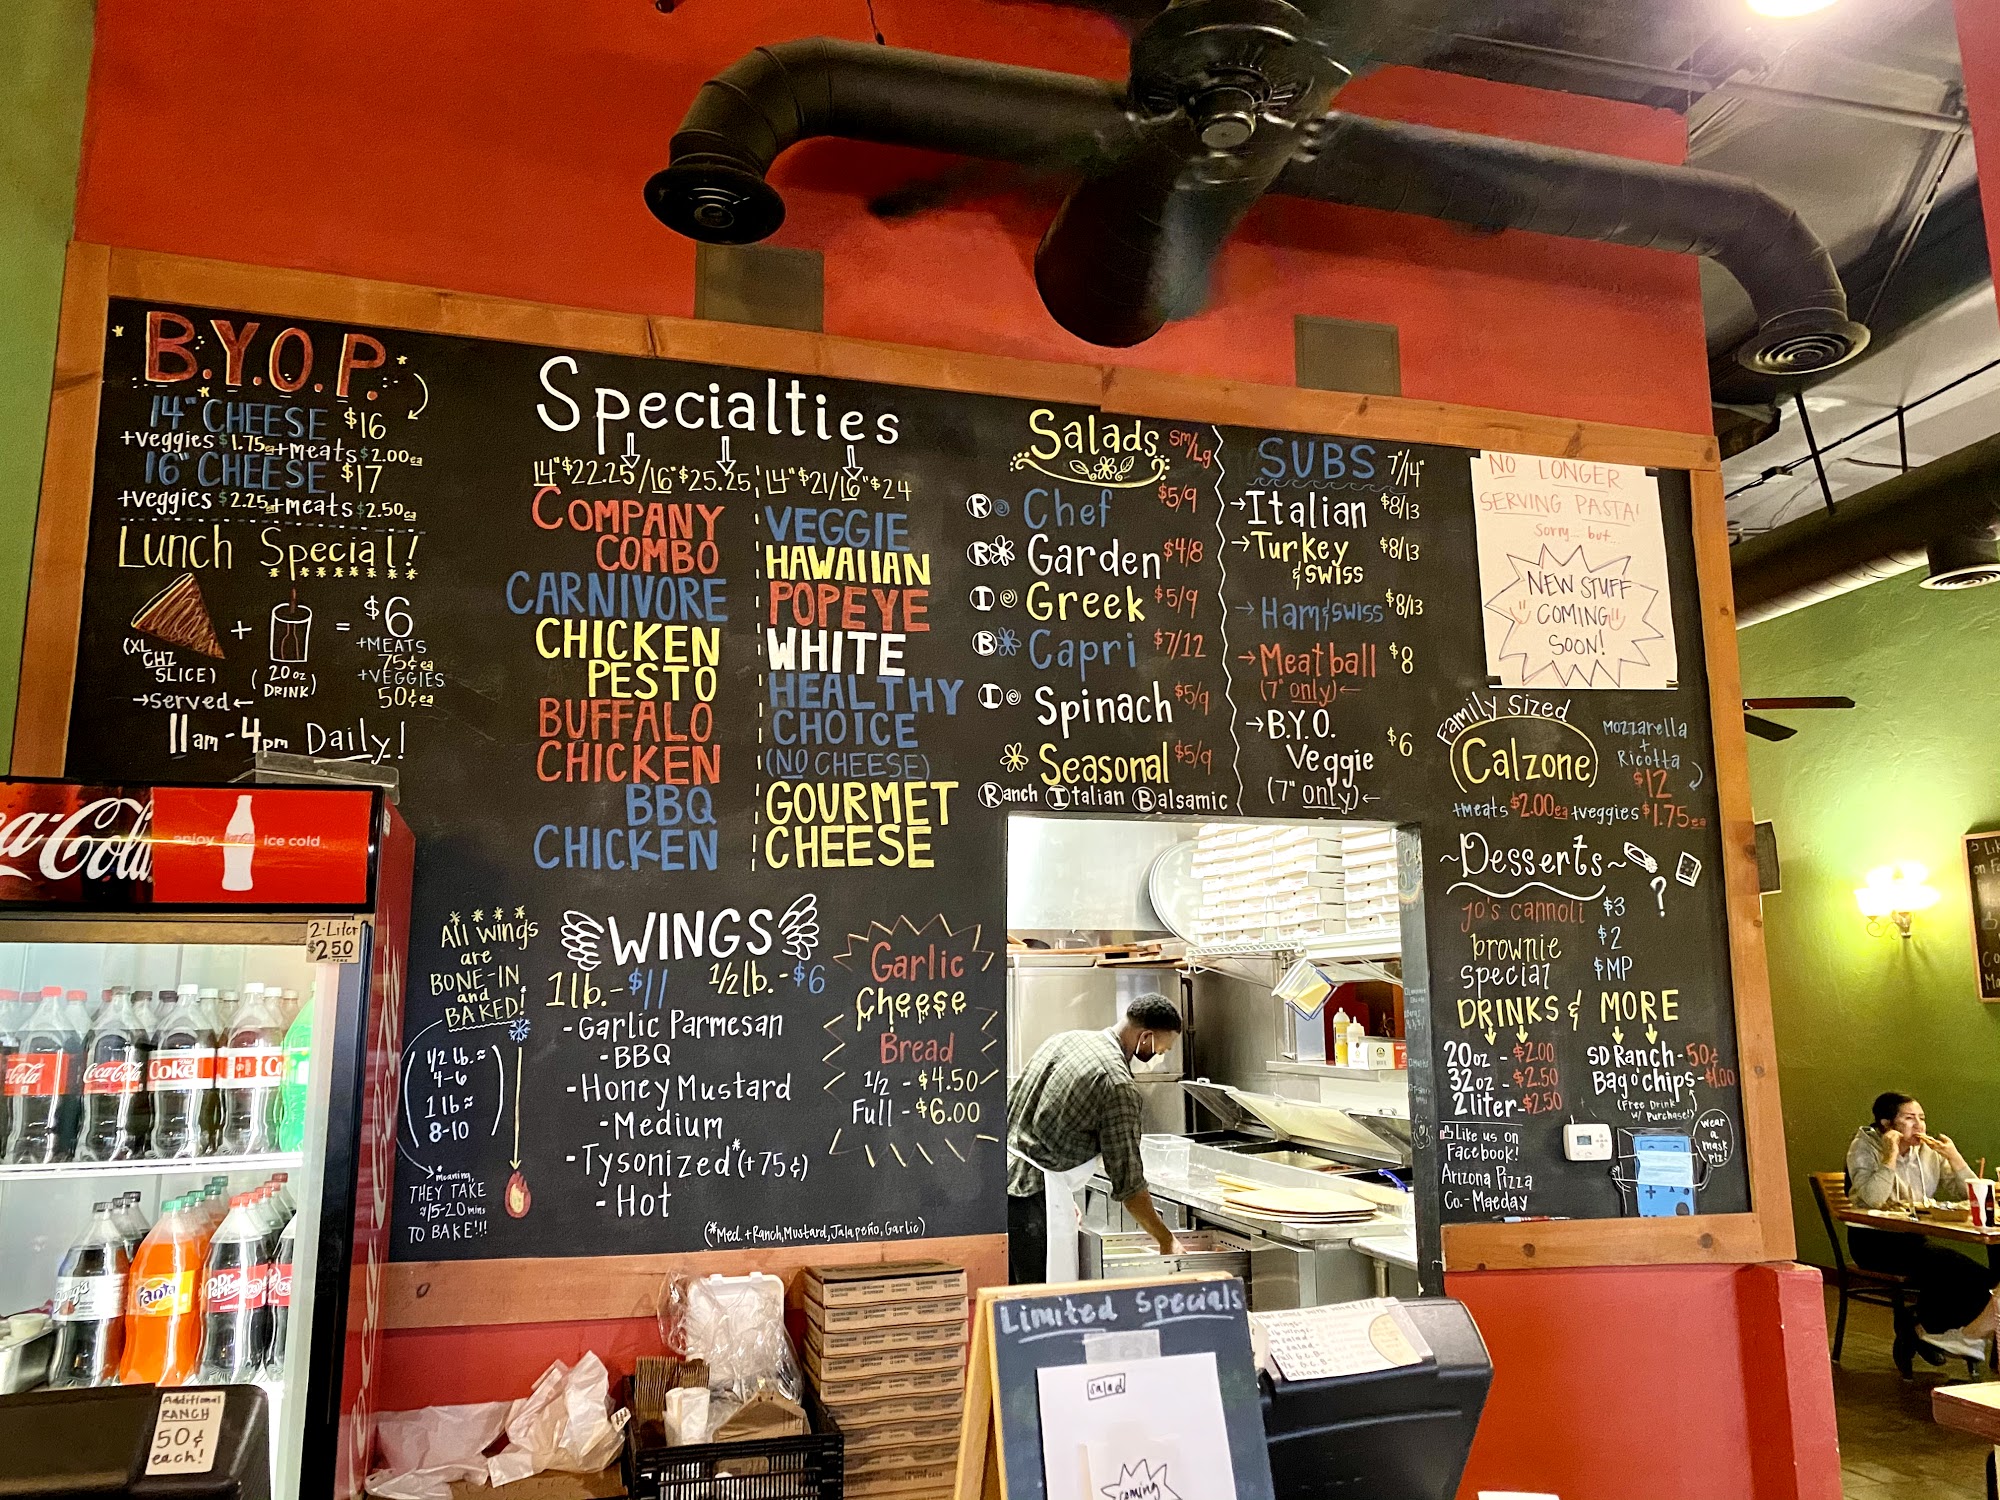 B.Y.O.P.
14" CHEESE $16
+veggies $1.75ea +meats $2.00ea
16" CHEESE $17
+veggies $2.25ea +meats $2.50ea
Lunch Special!
(XL CHZ SLICE) + (20oz DRINK) = $6
+MEATS
75¢ea
+VEGGIES
50¢ea
→Served←
11am-4pm Daily!
Specialties
14" $22.25/16" $25.25
COMPANY
COMBO
CARNIVORE
CHICKEN
PESTO
BUFFALO
CHICKEN
BBQ
CHICKEN
14" $21/16" $24
VEGGIE
HAWAIIAN
POPEYE
WHITE
HEALTHY
CHOICE
(NO CHEESE)
GOURMET
CHEESE
Salads Sm/Lg
R Chef $5/9
R Garden $4/8
I Greek $5/9
B Capri $7/12
I Spinach $5/9
Seasonal $5/9
Ranch Italian Balsamic
SUBS 7"/14"
→Italian $8/13
→Turkey $8/13
& SWISS
→Ham & SWISS $8/13
→Meatball $8
(7" only)←
→B.Y.O.
Veggie $6
(7" only)←
NO LONGER
SERVING PASTA!
Sorry... but...
NEW STUFF
COMING
SOON!
Family Sized
Calzone
Mozzarella
+
Ricotta
$12
+meats $2.00ea +veggies $1.75ea
~Desserts~
?
yo's cannoli $3
brownie $2
special $MP
DRINKS & MORE
20oz - $2.00
32oz - $2.50
2liter - $2.50
SD Ranch - 50¢
Bag o' chips - $1.00
(Free Drink
w/ Purchase!)
Like us on
Facebook!
Arizona Pizza
Co.-Maeday
wear
a
mask
plz!
All wings
are
BONE-IN
and
BAKED!
1/2 lb. ≈
4-6
1 lb ≈
8-10
*meaning,
THEY TAKE
≈15-20 mins
TO BAKE!!!
WINGS
1lb. - $11 1/2 lb. - $6
-Garlic Parmesan
-BBQ
-Honey Mustard
-Medium
-Tysonized* (+75¢)
-Hot
(*Med. + Ranch, Mustard, Jalapeño, Garlic)
Garlic
Cheese
Bread
1/2 - $4.50
Full - $6.00
enjoy ice cold
2-Liter
$2.50
Coca-Cola
Coke
Fanta
Dr Pepper
Additional
RANCH
50¢
each!
Limited Specials
Salad
coming